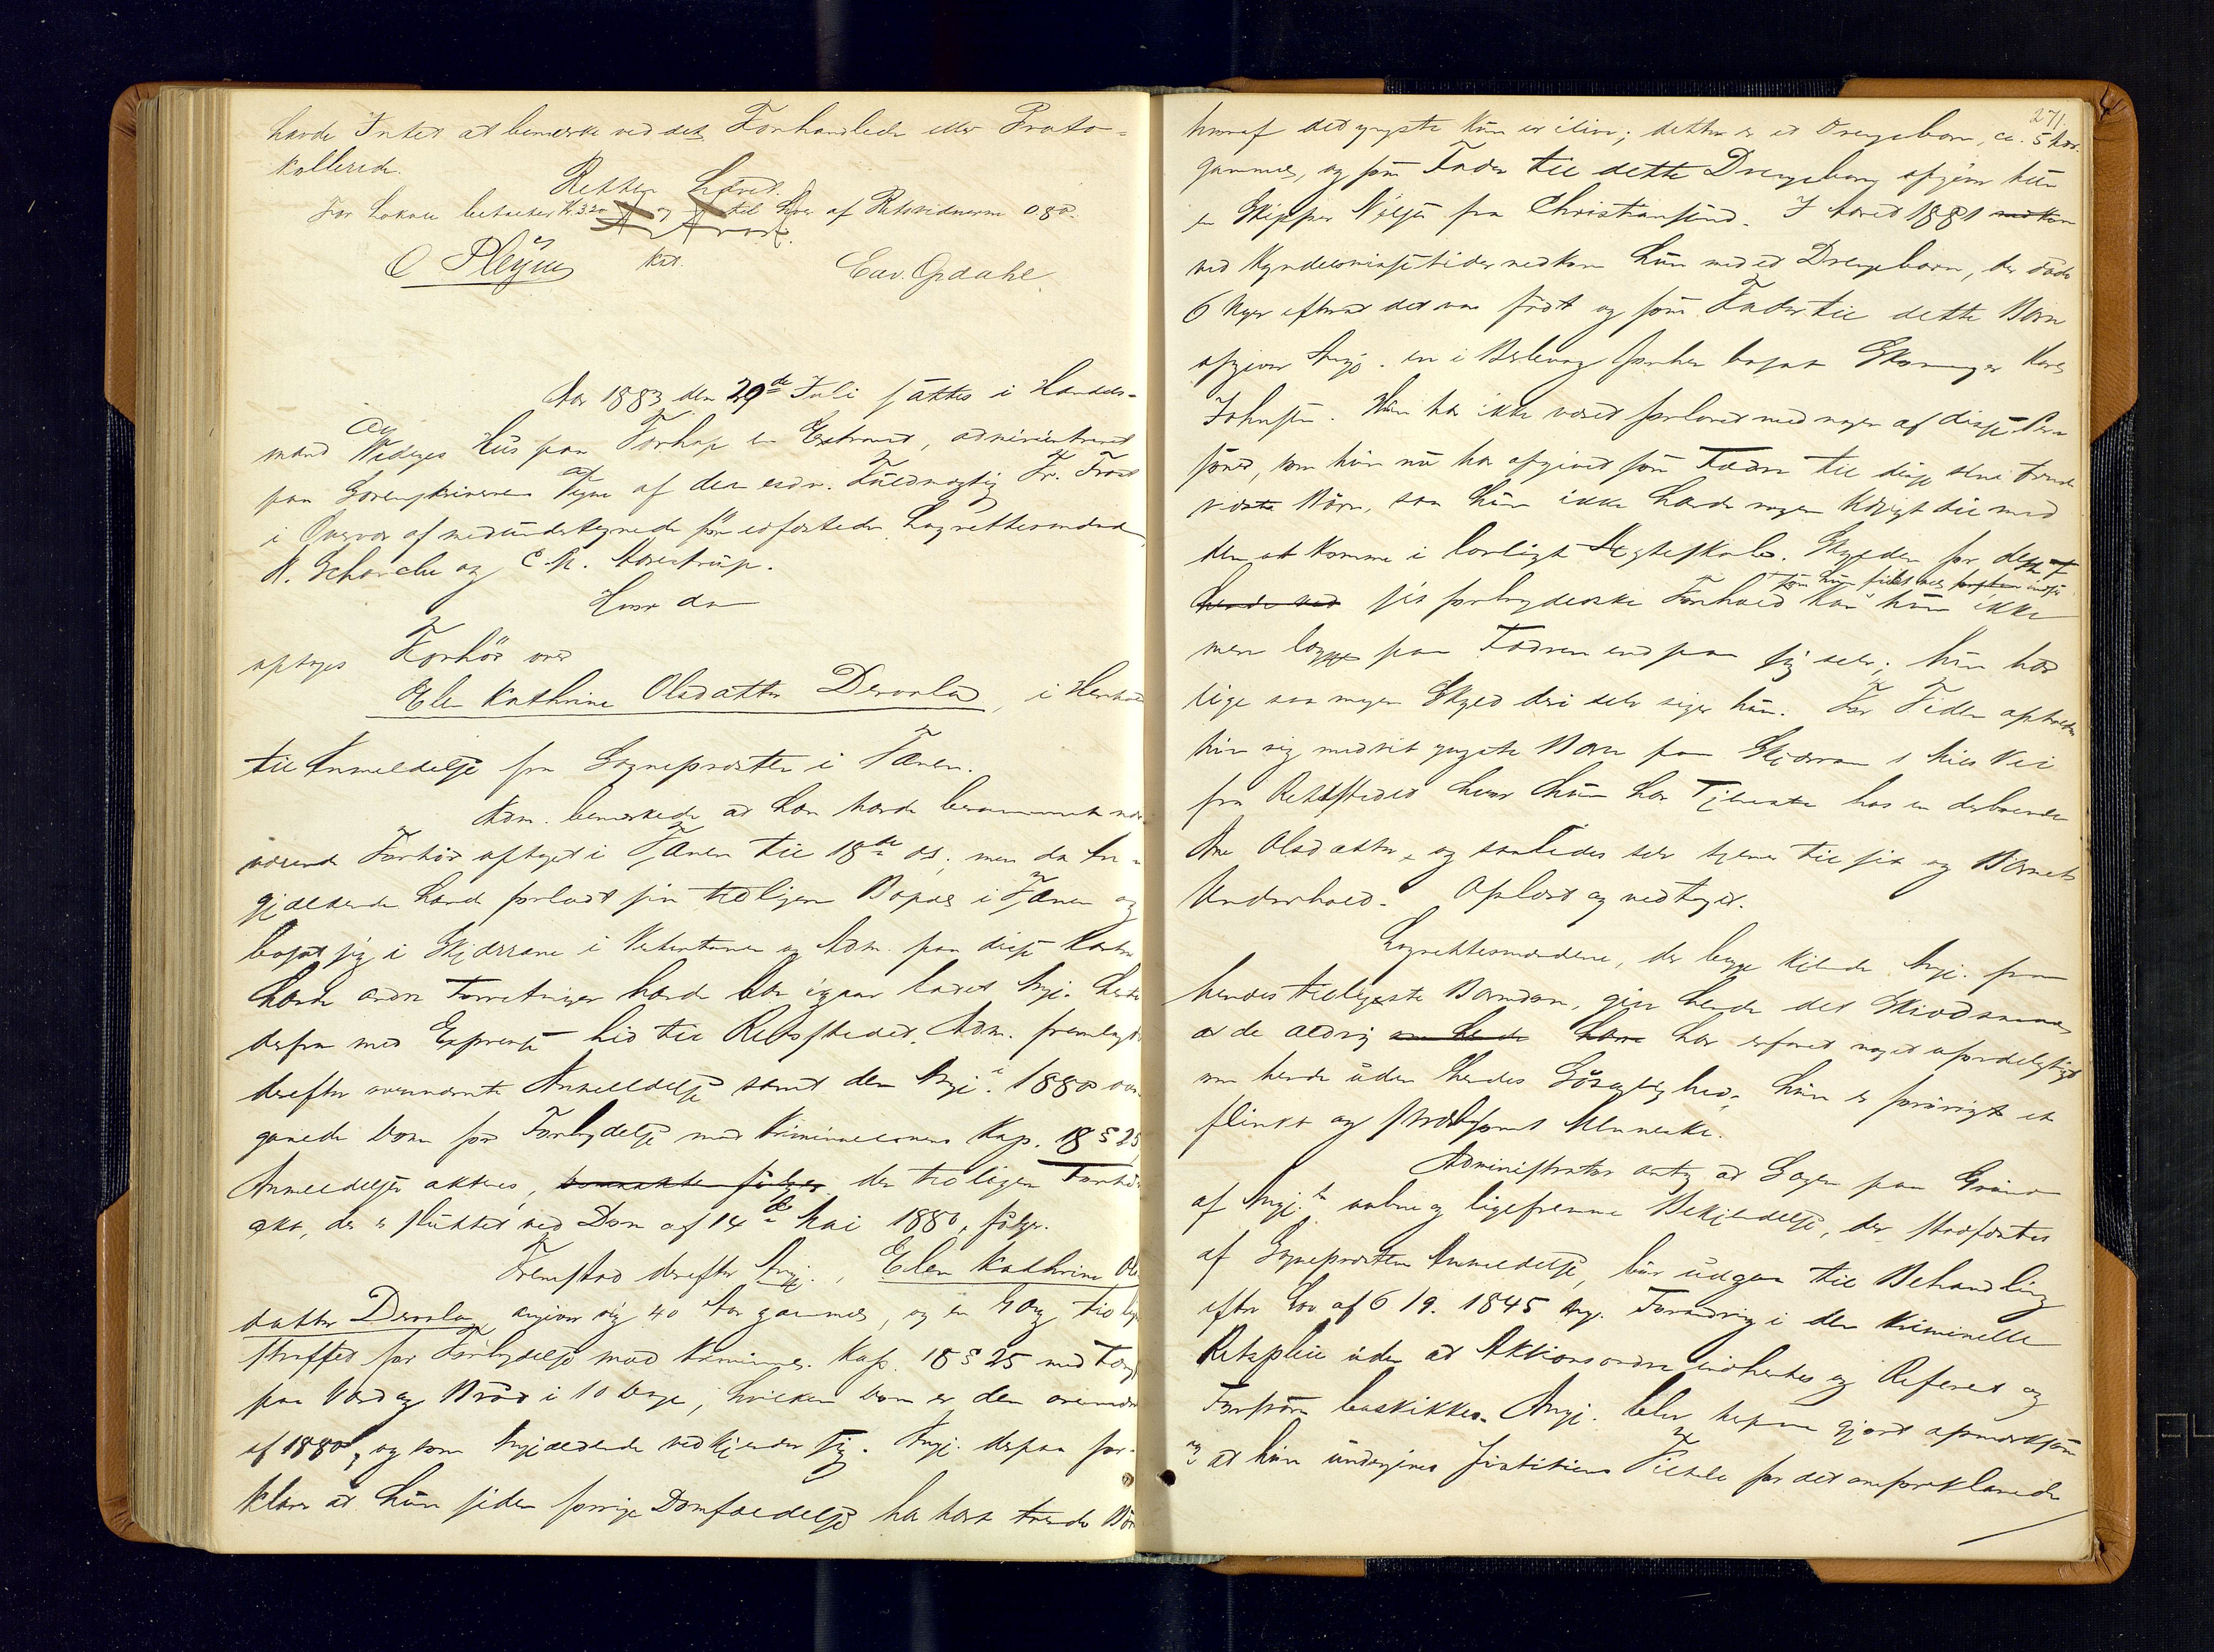 havde Intet at bemærke ved det Forhandlede eller Proto-
kollerede.
Retten hævet.
For Lokale betaltes Kr. 3.20 og til hver af Retsvidnerne 080.
A. Frost
O Pleym Kst. Edv. Opdahl.
Aar 1883 den 29de Juli sattes i Handels-
mand Wadeyes Hus paa Torhop en Extraret, administreret
paa Sorenskriverens Vegne af den edsv. Fuldmægtig Fr. Frost
i Overvær af medundertegnede før edfæstede Lagrettesmænd
N. Schanche og C. M. Aarestrup.
Hvor da
optoges Forhør over
Elen Kathrine Olsdatter Dervola, i Henhold
til Anmeldelse fra Sogneprosten i Tanen.
Adm. bemærkede at han havde berammet nær-
værende Forhør optaget i Tanen til 18de ds; men da An-
gjældende havde forladt sin tidligere Bopæl i Tanen og
bosat sig i Skjærran i Vestertanen og Adm. paa disse Kanter
havde andre Forretninger havde han igaar ladet Angj. hente
derfra med Express hid til Retsstedet. Adm. fremlagde
derefter ovennævnte Anmeldelse samt den Angj. i 1880 over-
gaaede Dom for Forbrydelse mod Kriminallovens Kap. 18 § 25
Anmeldelsen aktens, der tidligere Forhørs-
akt, der er sluttet ved Dom af 14de Mai 1880, følger.
Fremstod derefter Angj., Elen Kathrine Ols-
datter Dervola, angiver sig 40 Aar gammel, og en Gang tidligere
straffet for Forbrydelse mod Kriminall. Kap. 18 § 25 med Fængsel
paa Vand og Brød i 10 Dage, hvilken Dom er den ovennævnte
af 1880, og som Angjældende vedkjender sig. Angj. derpaa for-
klarer at hun siden forrige Domfældelse har havt trende Børn
271.
hvoraf det yngste kun er ilive; dette er et Drengebarn, ca. 5 Aar
gammel, og som Fader til dette Drengebarn opgiver hun
en Skipper Nilsen fra Christiansund. I Aaret 1881
ved Kyndelsmissetider nedkom hun med et Drengebarn, der døde
6 Uger efterat det var født og som Fader til dette Barn
opgiver Angj. en i Berlevaag forhen bosat Skomager Karl
Johnsen. Hun har ikke været forlovet med nogen af disse Per-
soner, som hun nu har opgivet som Fædre til disse sine trende
Børn, saa hun ikke havde nogen Udsigt til med
dem at komme i lovligt Ægteskab. Skylden for dette
sit forbryderske Forhold som hun fuldt vel indser kan hun ikke
mere lægge paa Fædrene end paa sig selv; hun har
lige saa megen Skyld deri selv siger hun. For Tiden opholder
hun sig med sit yngste Barn paa Skjærran 1 Miils Vei
fra Retsstedet hvor hun har Tjeneste hos en derboende
Ane Olsdatter, og saaledes selv tjener til sit og Barnets
Underhold. Oplæst og vedtaget.
Lagrettesmændene, der begge kjende Angj. fra
hendes tidligste Barndom, giver hende det Skudsmaal
at de aldrig har erfaret noget ufordelagtigt
om hende uden hendes Løsagtighed; hun er forøvrigt et
flinkt og strebsomt Menneske.
Administrator antog at Sagen paa Grund
af Angj.s aabne og ligefremme Bekjendelse, der stadfæstes
af Sogneprostens Anmeldelse, bør udgaa til Behandling
efter Lov af 6/9. 1845 ang. Forandring i den kriminelle
Retspleie uden at Aktionsordre indhentes og Referent og
Forsvarer beskikkes. Angj. blev herpaa gjort opmærksom
paa at hun undergives Justitiens Tiltale for det omforklarede